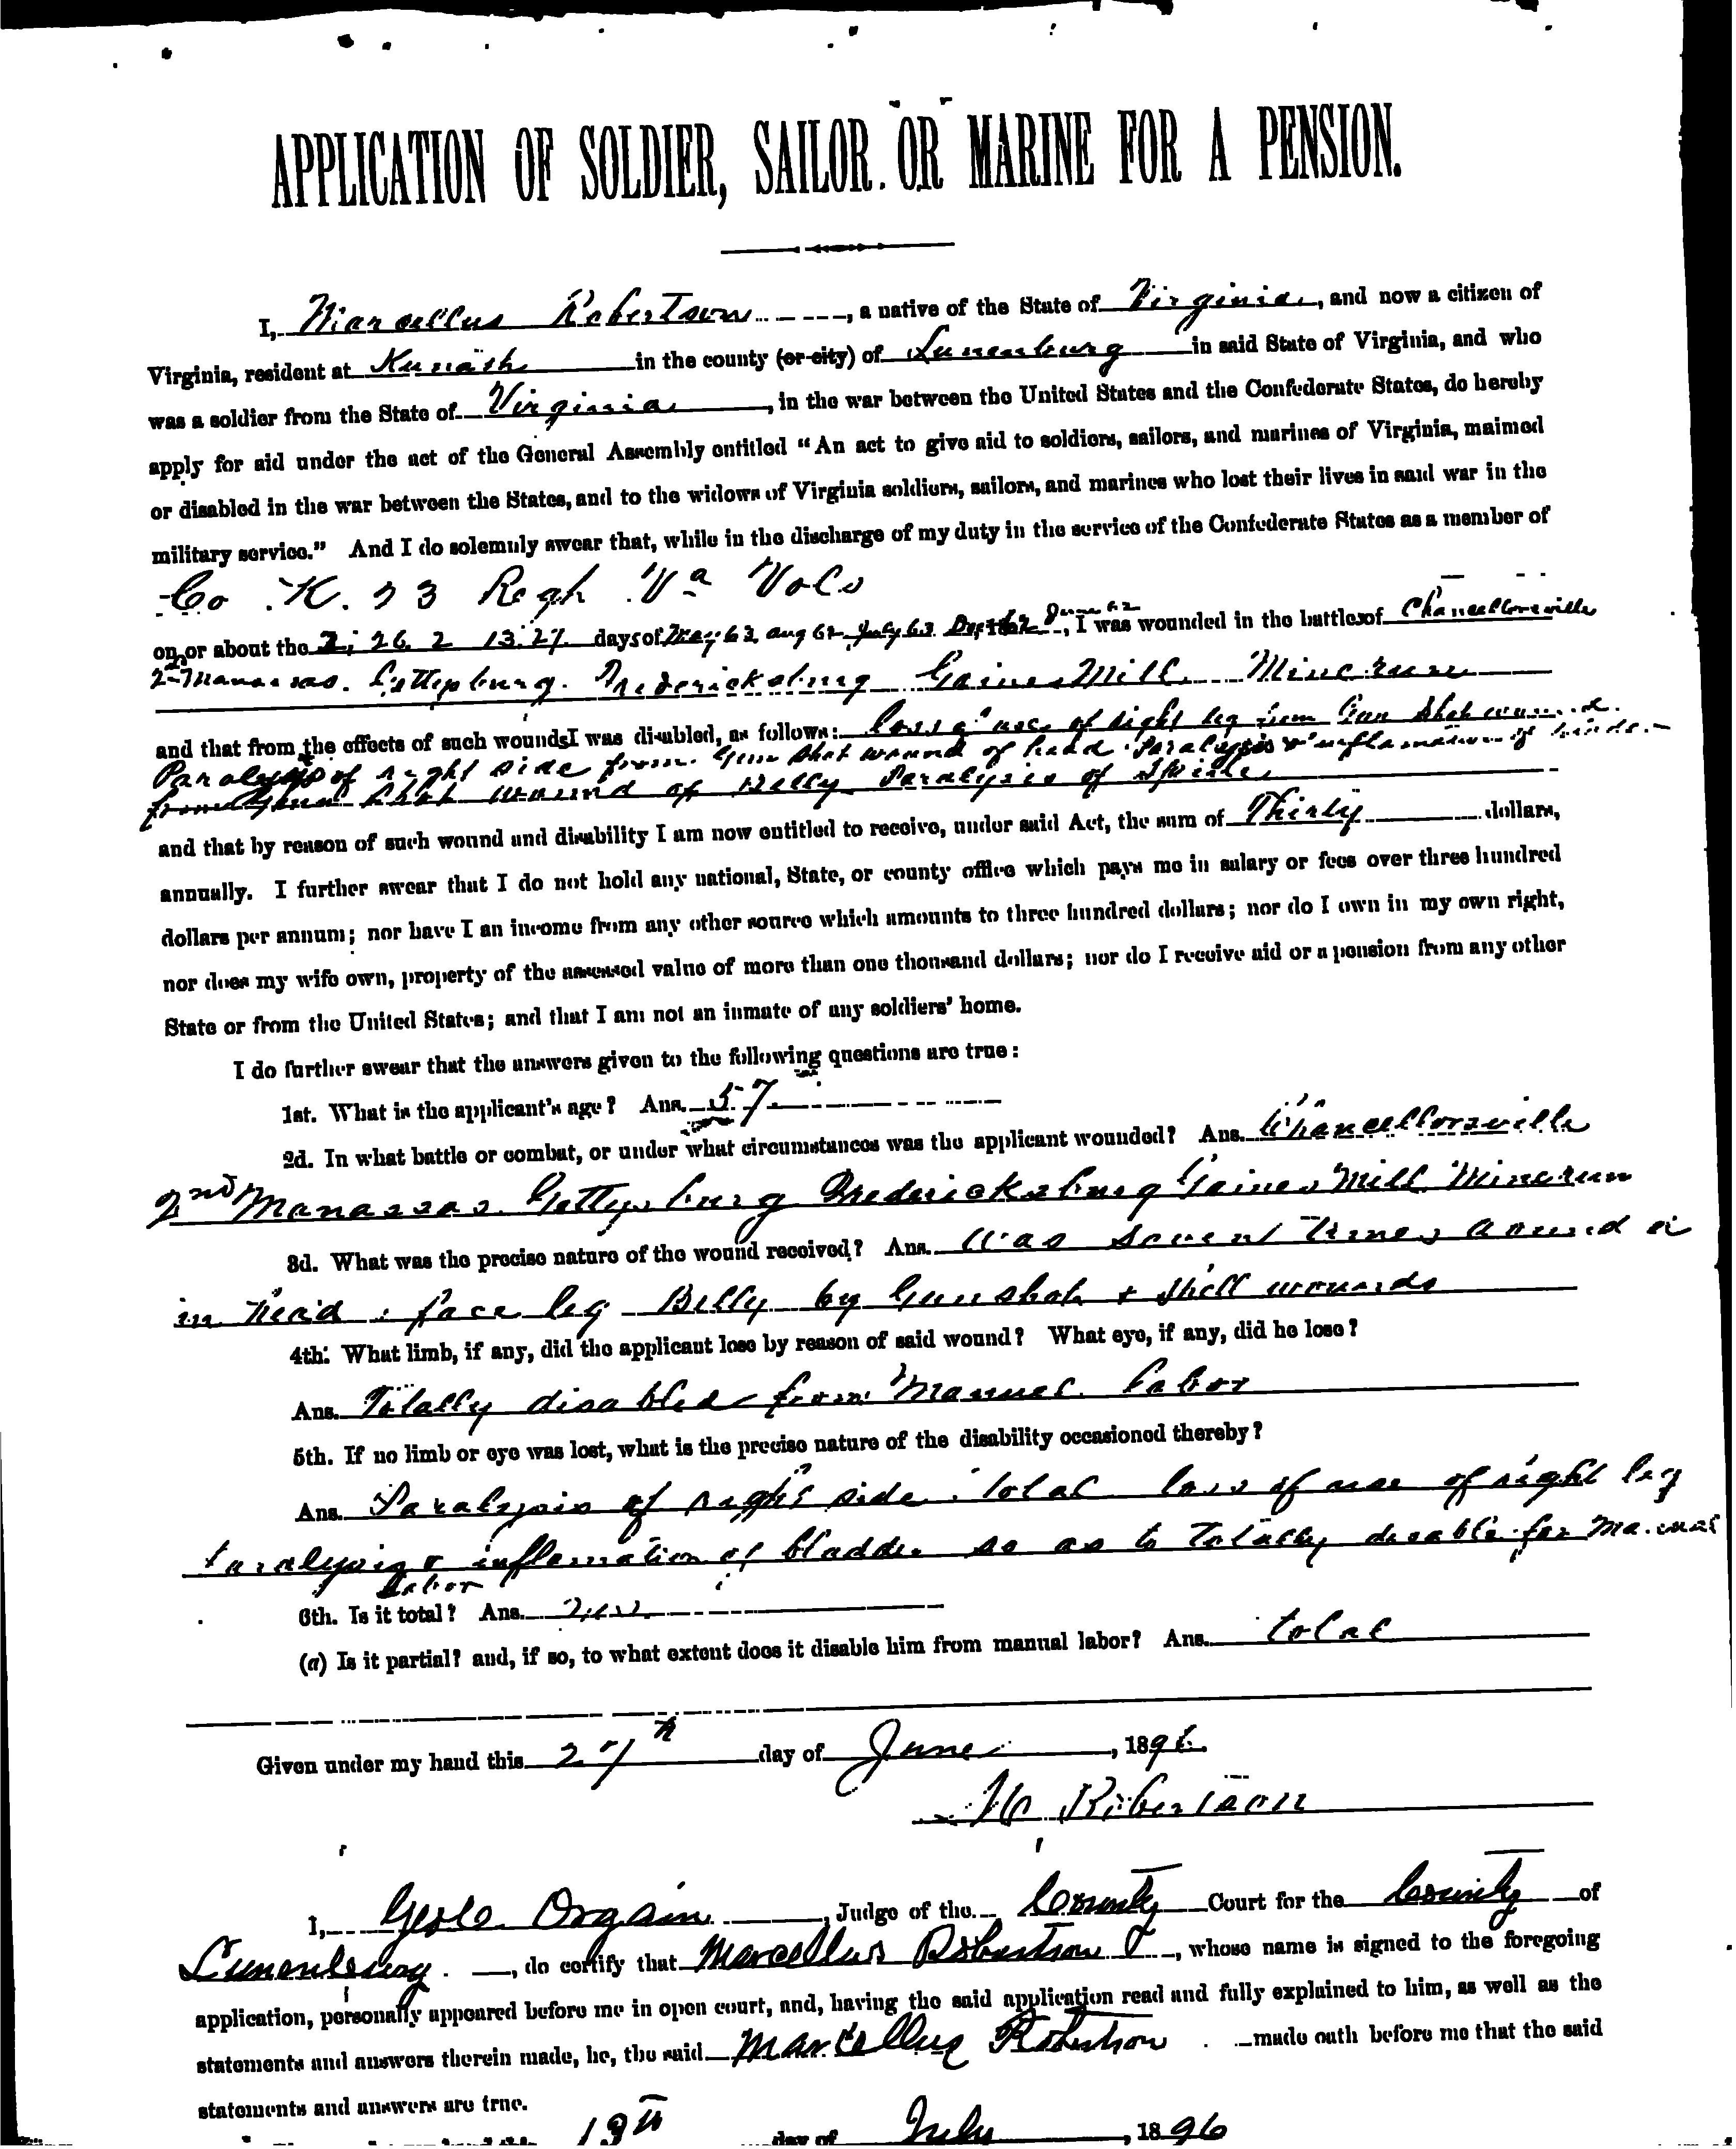 APPLICATION OF SOLDIER, SAILOR OR MARINE FOR A PENSION.
I, Marcellus Robertson, a native of the State of Virginia, and now a citizen of
Virginia, resident at in the county (or city) of Lunenburg in said State of Virginia, and who
was a soldier from the State of Virginia, in the war between the United States and the Confederate States, do hereby
apply for aid under the act of the General Assembly entitled "An act to give aid to soldiers, sailors, and marines of Virginia, maimed
or disabled in the war between the States, and to the widows of Virginia soldiers, sailors, and marines who lost their lives in said war in the
military service." And I do solemnly swear that, while in the discharge of my duty in the service of the Confederate States as a member of
Co. K. 23 Regt Va Vols
on or about the 2, 26. 2 13. 27 days of May 63. Aug 62 July 63 Dec 1862 June 62, I was wounded in the battles of Chancellorsville
2nd Manassas. Gettysburg. Fredericksburg Gaines Mill Minerun
and that from the effects of such wounds I was disabled, as follows: Loss of use of right leg from Gun Shot wound.
Paralysis of right side from Gun shot wound of head. Paralysis & inflamation of
from Gun shot wound of Belly Paralysis of
and that by reason of such wound and disability I am now entitled to receive, under said Act, the sum of Thirty dollars,
annually. I further swear that I do not hold any national, State, or county office which pays me in salary or fees over three hundred
dollars per annum; nor have I an income from any other source which amounts to three hundred dollars; nor do I own in my own right,
nor does my wife own, property of the assessed value of more than one thousand dollars; nor do I receive aid or a pension from any other
State or from the United States; and that I am not an inmate of any soldiers' home.
I do further swear that the answers given to the following questions are true:
1st. What is the applicant's age? Ans. 57
2d. In what battle or combat, or under what circumstances was the applicant wounded? Ans. Chancellorsville
2nd Manassas. Gettysburg Fredericksburg Gaines Mill Minerun
3d. What was the precise nature of the wound received? Ans. Was seven times wounded
in head. face leg Belly by Gunshot & shell wounds
4th. What limb, if any, did the applicant lose by reason of said wound? What eye, if any, did he lose?
Ans. Totally disabled from Manuel labor
5th. If no limb or eye was lost, what is the precise nature of the disability occasioned thereby?
Ans. Paralysis of right side. total loss of use of right leg
Paralysis & inflamation of bladder so as to totally disable for Manual
labor
6th. Is it total? Ans. yes
(a) Is it partial? and, if so, to what extent does it disable him from manual labor? Ans. total
Given under my hand this 27th day of June, 1896.
M Robertson
I, Geo C. Orgain, Judge of the County Court for the County of
Lunenburg, do certify that Marcellus Robertson, whose name is signed to the foregoing
application, personally appeared before me in open court, and, having the said application read and fully explained to him, as well as the
statements and answers therein made, he, the said Marcellus Robertson made oath before me that the said
statements and answers are true.
13th day of July, 1896